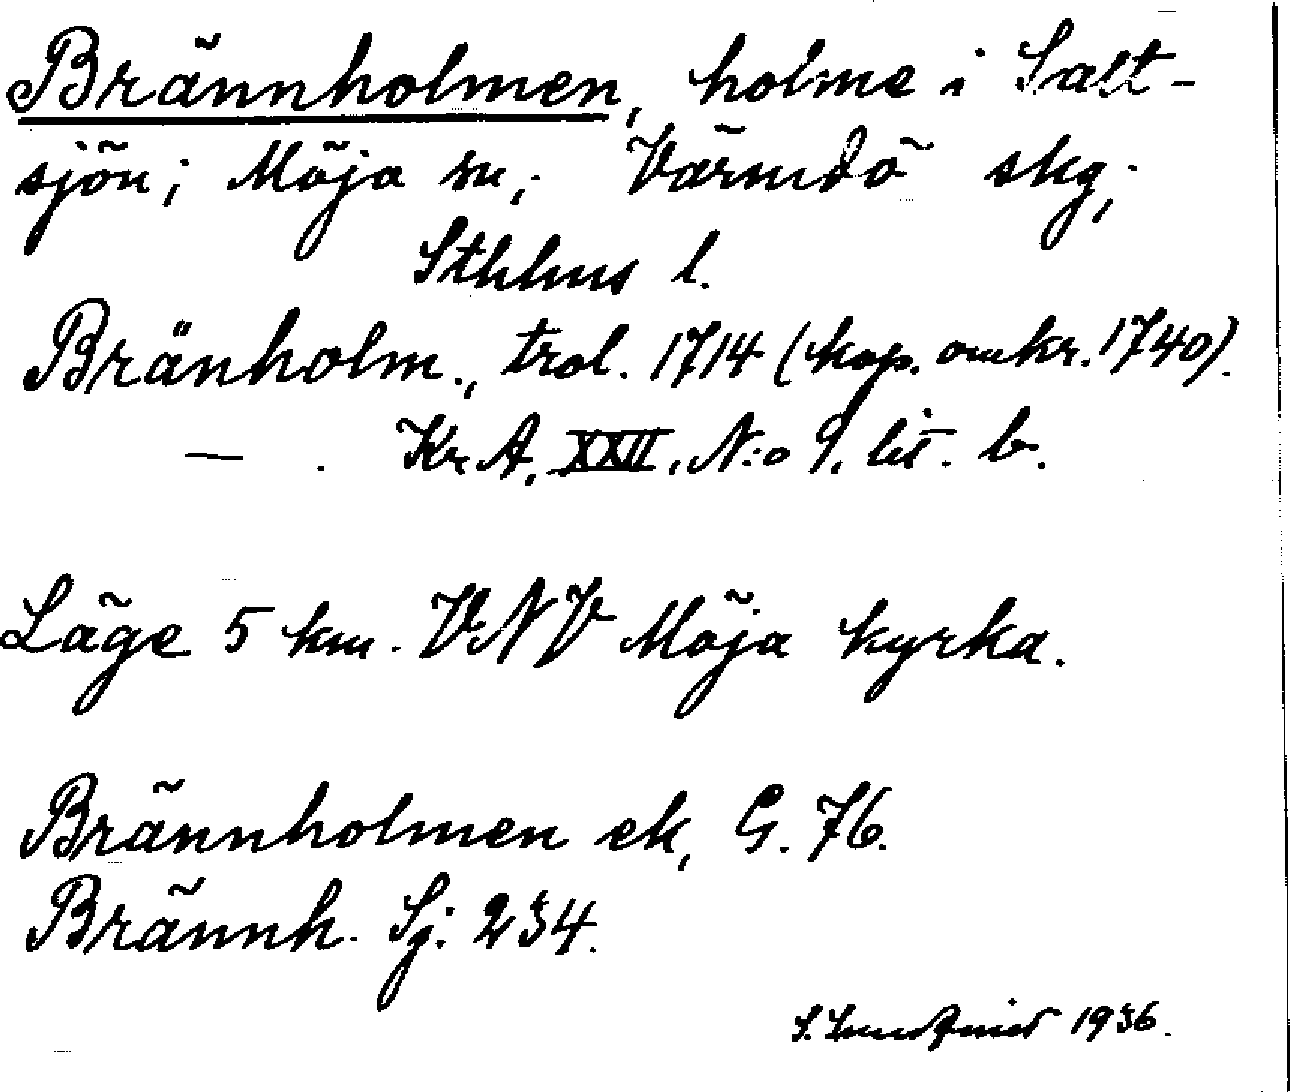 Brännholmen, holme i Salt-
sjön; Möja sn; Värmdö skg;
Sthlms l.
Bränholm., trol. 1714 (kop. omkr. 1740).
— . Kr. A. XXII. N:o 9. lit. b.
Läge 5 km. VNV Möja kyrka.
Brännholmen ek, G. 76.
Brännh. Sj. 234.
S. 1936.